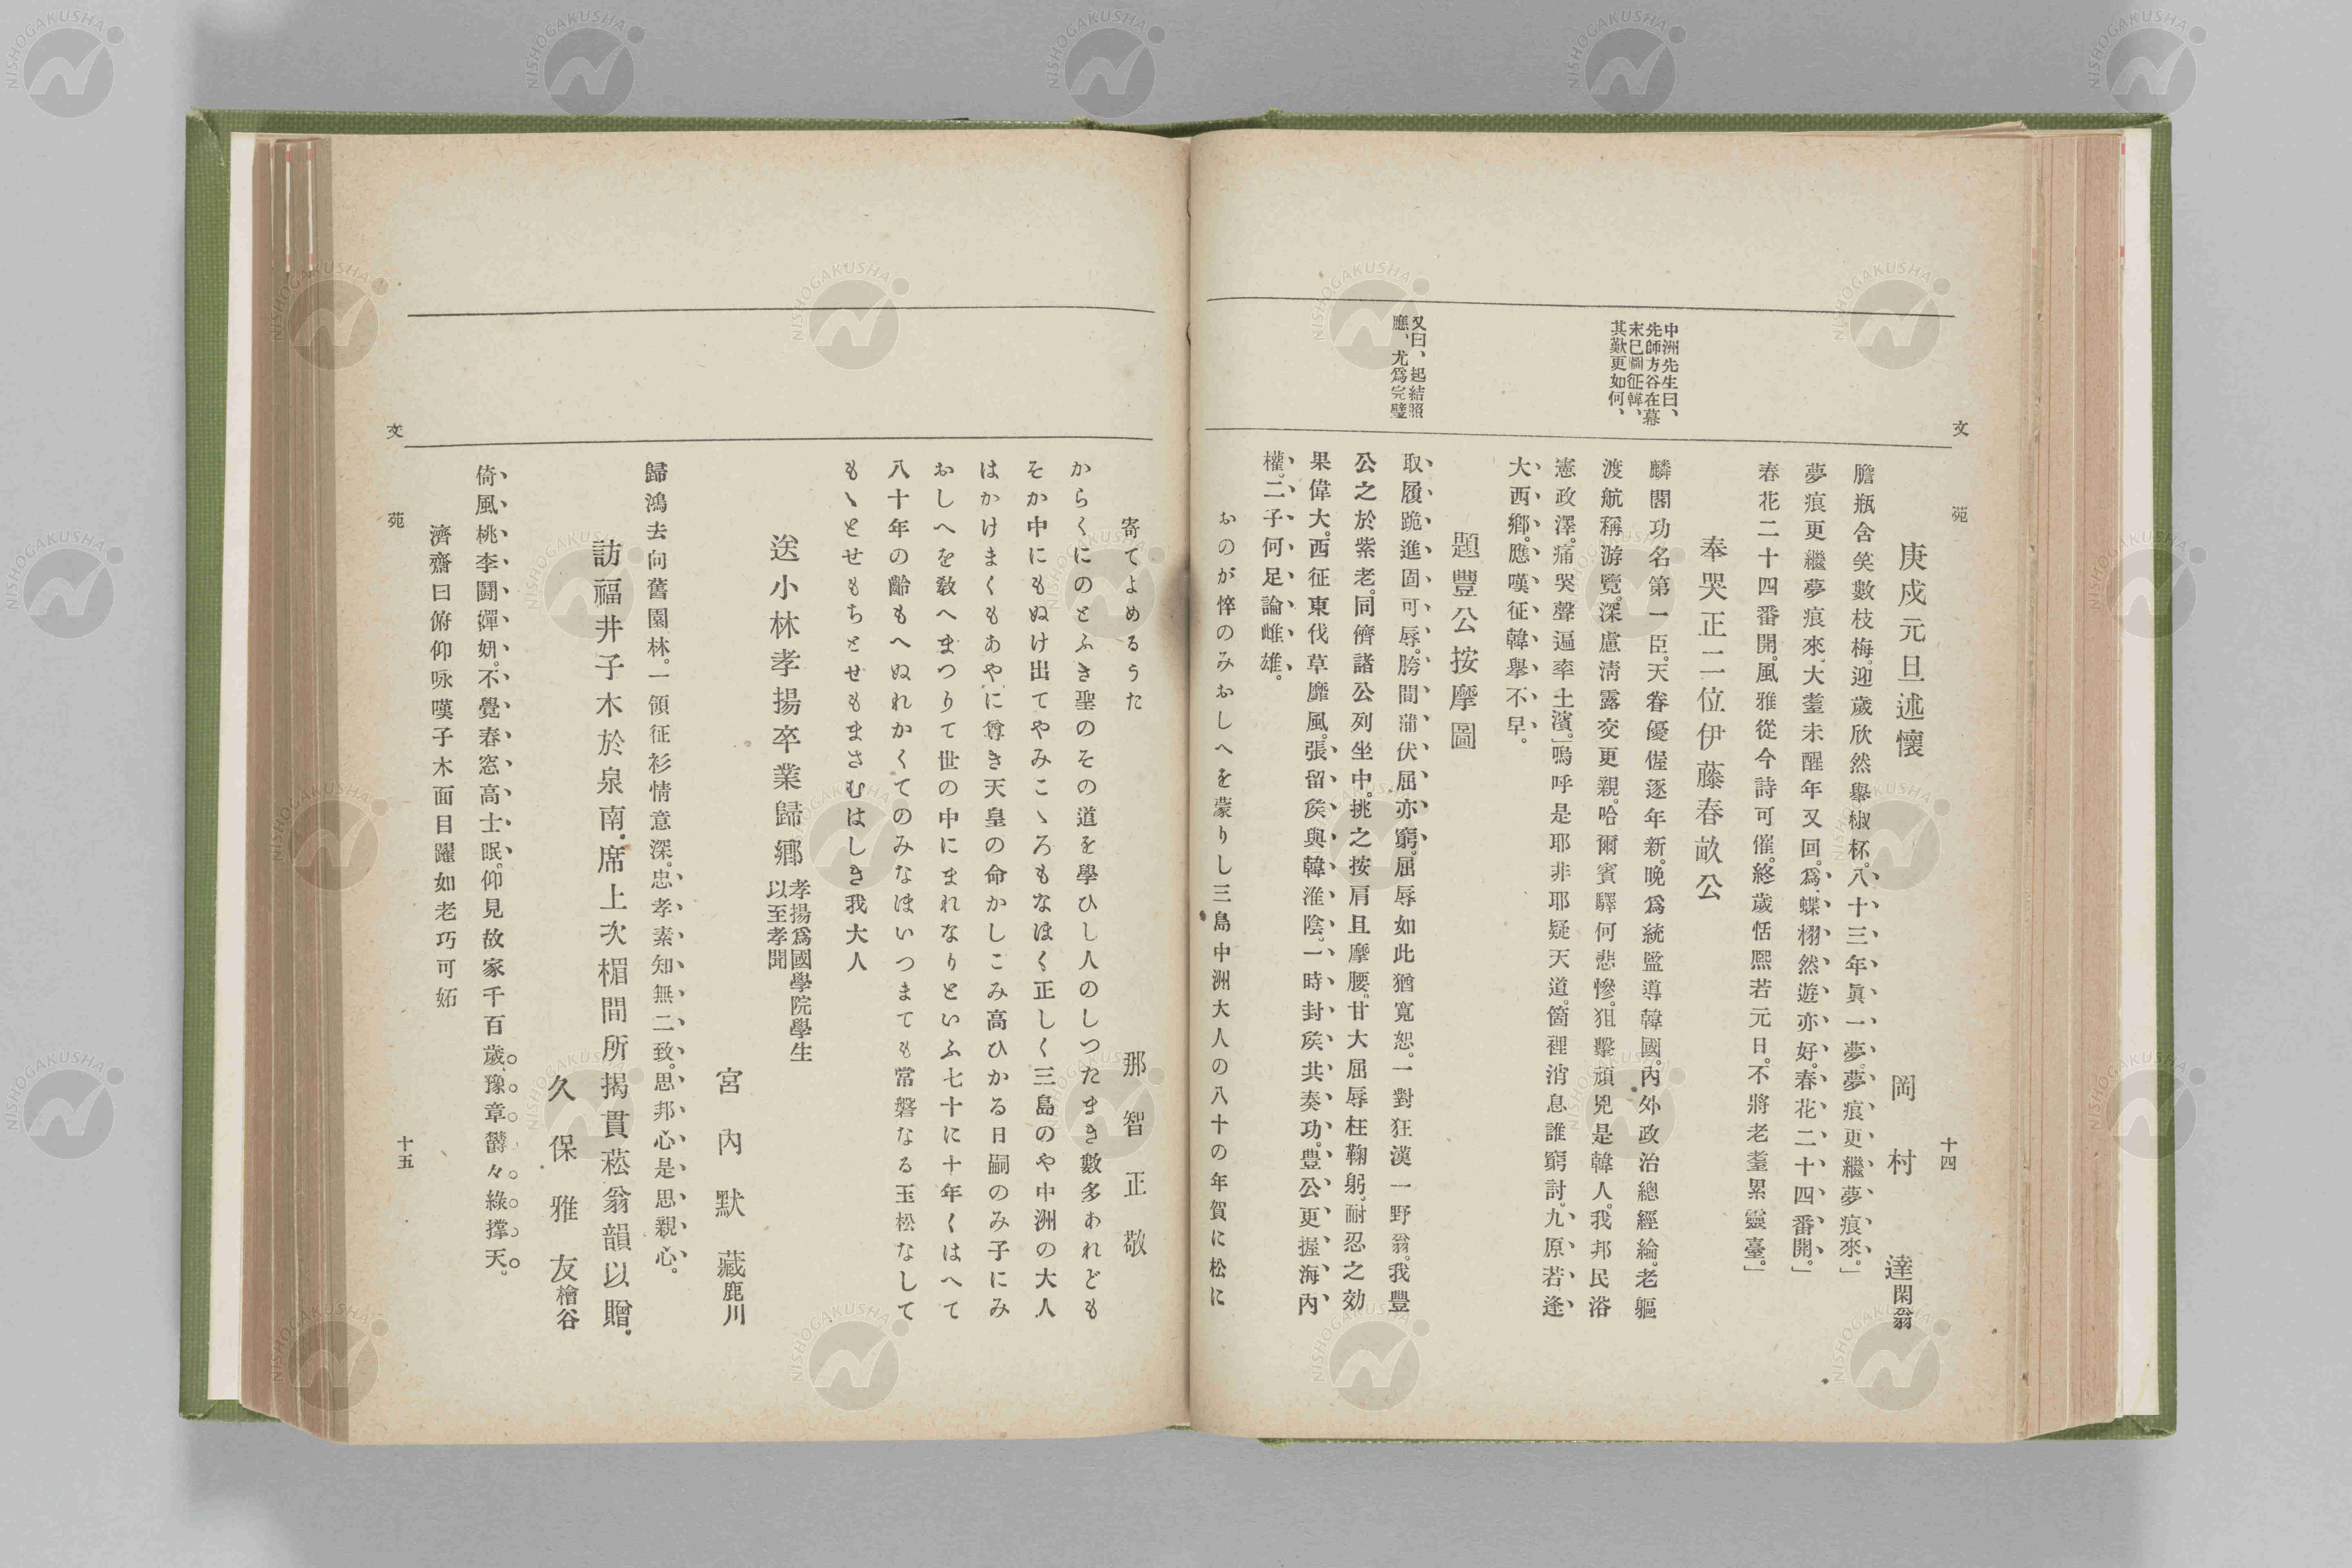 文苑
十四
庚戍元旦述懷
岡村達閑翁
膽瓶含笑數枝梅。迎歲欣然擧椒杯。八十三年眞一夢。夢痕更繼夢痕來。」
夢痕更繼夢痕來、大耋未醒年又回。爲蝶栩然遊亦好。春花二十四番開。」
春花二十四番開。風雅從今詩可催。終歲恬熈若元日。不將老耋累靈臺。」
奉哭正二位伊藤春畝公
中洲先生曰、
先師方谷在幕
末已圖征韓、
其歎更如何、
麟閣功名第一臣。天眷優偓逐年新。晩爲統監導韓國。內外政治總經綸。老軀
渡航稱游覽。深慮淸露交更親。哈爾賓驛何悲慘。狙擊頑兇是韓人。我邦民浴
憲政澤。痛哭聲遍率土濱。」嗚呼是耶非耶疑天道。箇裡消息誰窮討。九原若逢
大西鄕。應嘆征韓擧不早。
題豐公按摩圖
又曰、起結照
應、尤爲完璧
取履跪進固可辱。胯間蒲伏屈亦窮。屈辱如此猶寬恕。一對狂漢一野翁。我豐
公之於紫老。同儕諸公列坐中。挑之按肩且摩腰。甘大屈辱枉鞠躬。耐忍之効
果偉大。西征東伐草靡風。張留矦與韓淮陰。一時封矦共奏功。豊公更握海內
權。二子何足論雌雄。
おのが悴のみおしへを蒙りし三島中洲大人の八十の年賀に松に
寄てよめるうた
那智正敬
からくにのとふき聖のその道を學ひし人のしつたまき數多あれども
そか中にもぬけ出てやみこゝろもなほく正しく三島のや中洲の大人
はかけまくもあやに尊き天皇の命かしこみ高ひかる日嗣のみ子にみ
おしへを敎へまつりて世の中にまれなりといふ七十に十年くはへて
八十年の齡もへぬれかくてのみなほいつまても常磐なる玉松なして
もゝとせもちとせもまさむはしき我大人
送小林孝揚卒業歸鄕
孝揚爲國學院學生
以至孝聞
宮內默藏鹿川
歸鴻去向舊園林。一領征衫情意深。忠孝素知無二致。思邦心是思親心。
訪福井子木於泉南。席上次楣間所揭貫菘翁韻以贈。
久保雅友檜谷
倚風桃李鬪嬋妍。不覺春窓高士眠。仰見故家千百歲。豫章欝々綠撑天。
濟齋曰俯仰咏嘆子木面目躍如老巧可妬
文苑
十五